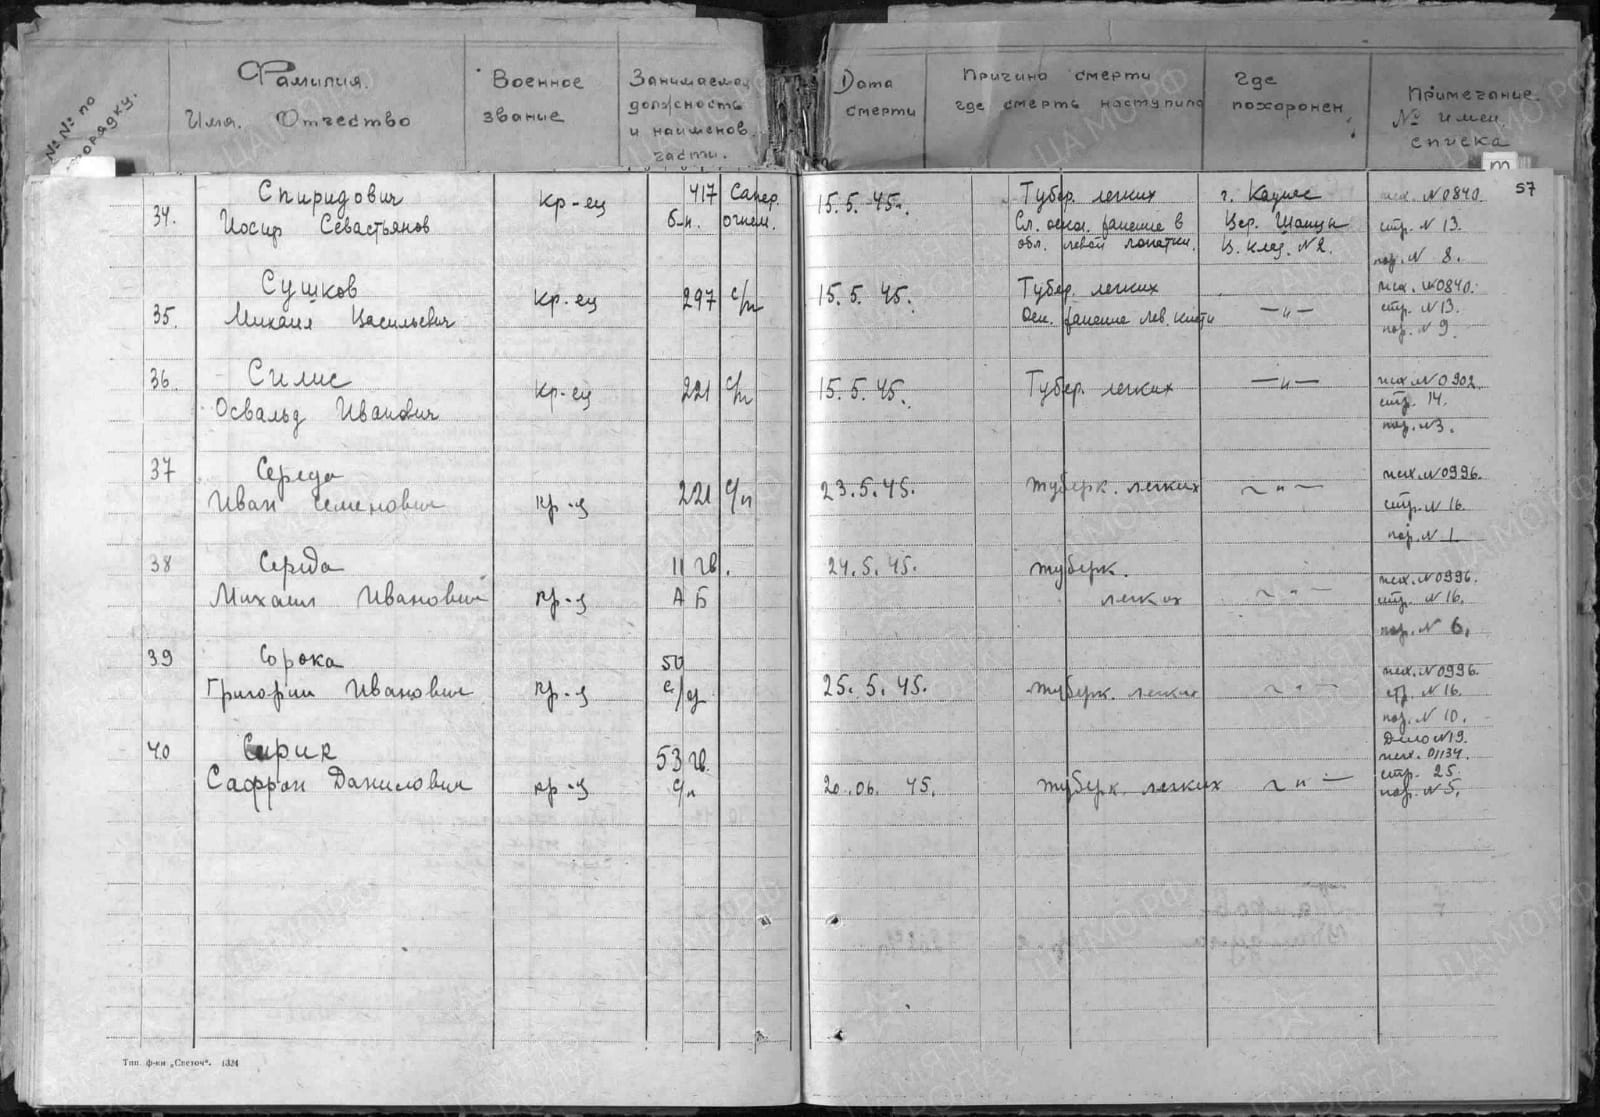 №№ по порядку.
Фамилия.
Имя. Отчество
Военное
звание
Занимаемая
должность
и наименов.
части.
Дата
смерти
Причина смерти
где смерть наступила
Где
похоронен
Примечание
№ имен.
списка
57
34.
Спиридович
Иосиф Севастьянов
кр-ец
417 Сапер.
б-н. огнем.
15.5.45.
Тубер. легких
Сл. оскол. ранение в
обл. левой лопатки.
г. Каунас
Шанцы
клад. №2.
исх. №0840.
стр. № 13.
пор. № 8.
35.
Сушков
Михаил Васильевич
кр-ец
297 с/п
15.5.45.
Тубер. легких
Оск. ранение лев. кисти
—"—
исх. №0840.
стр. №13.
пор. № 9.
36.
Силис
Освальд Иванович
кр-ец
221 с/п
15.5.45.
Тубер. легких
—"—
исх. №0902.
стр. 14.
пор. №3.
37
Середа
Иван Семенович
кр-ц
221 с/п
23.5.45.
туберк. легких
—"—
исх. №0996.
стр. №16.
пор. № 1
38
Середа
Михаил Иванович
кр-ц
11 гв.
АБ
24.5.45.
туберк.
легких
—"—
исх. №0996.
стр. №16.
пор. № 6.
39
Сорока
Григорий Иванович
кр-ц
50
с/д
25.5.45.
туберк. легких
—"—
исх. №0996.
стр. №16.
пор. № 10.
40
Сирик
Сафрон Данилович
кр-ц
53 гв.
с/п
20.06.45.
туберк. легких
—"—
Дело №19.
исх. 01134.
стр. 25.
пор. №5.
Тип. ф-ки „Светоч". 1324
ЦАМО.РФ
ПАМЯТЬ
НАРОДА